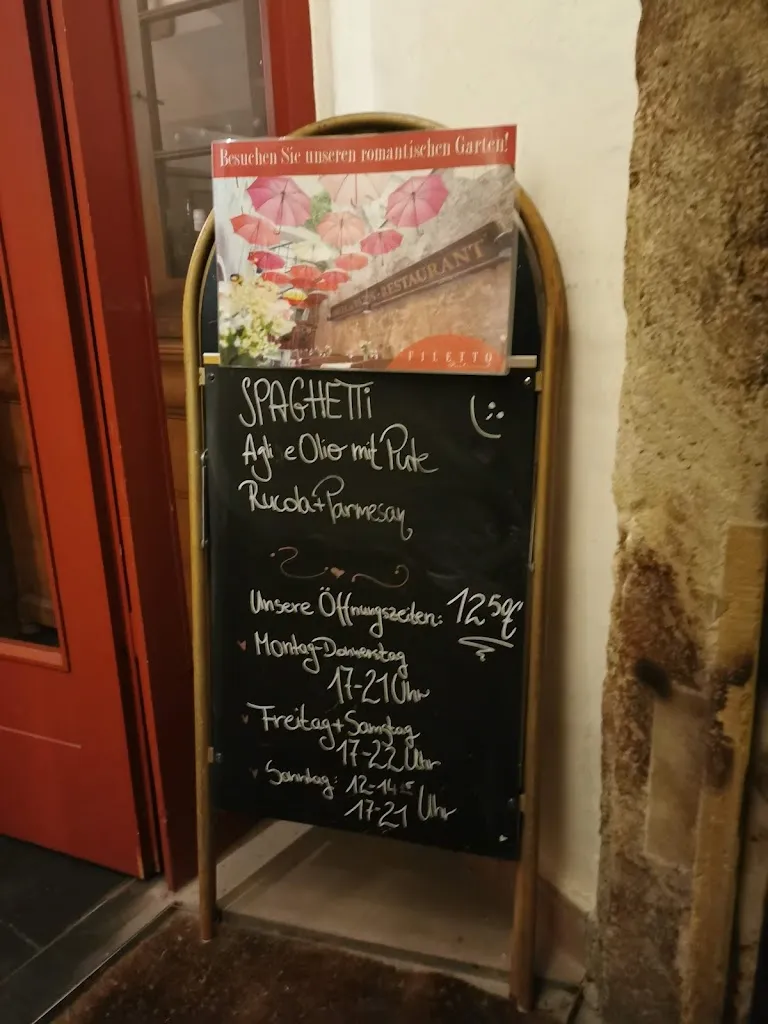 Besuchen Sie unseren romantischen Garten!
RESTAURANT
FILETTO
SPAGHETTi
Agli e Olio mit Pute
Rucola + Parmesan
Unsere Öffnungszeiten: 12 50 €
Montag-Donnerstag
17-21 Uhr
Freitag + Samstag
17-22 Uhr
Sonntag: 12-14
17-21 Uhr